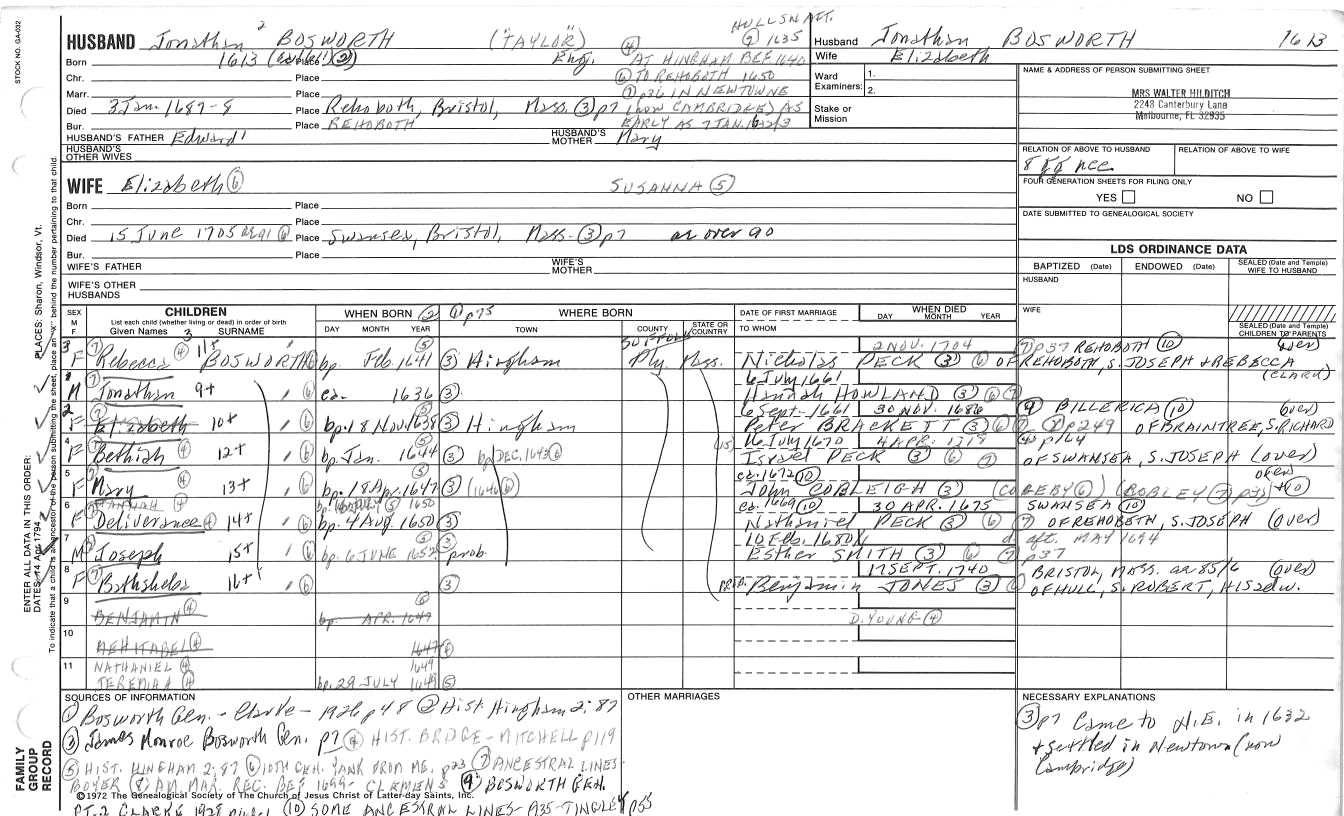 STOCK NO. GA-032
HUSBAND Jonathan 2 BOSWORTH (TAYLOR) HULL
Born 1613 (2) Place Eng. (4) (2) 1635
AT HINGHAM BEF 1640
Chr. Place (6) TO REHOBOTH 1650
Marr. Place (7) p36 IN NEWTOWNE
Died 3 Jan. 1687-8 Place Rehoboth, Bristol, Mass. (3) p7 (NOW CAMBRIDGE) AS
Bur. Place REHOBOTH EARLY AS 7 JAN.
HUSBAND'S FATHER Edward 1 HUSBAND'S MOTHER Mary
HUSBAND'S OTHER WIVES
Husband Jonathan BOSWORTH 1613
Wife Elizabeth
Ward Examiners: 1.
2.
Stake or Mission
NAME & ADDRESS OF PERSON SUBMITTING SHEET
MRS WALTER HILDITCH
2243 Canterbury Lane
Melbourne, FL 32935
RELATION OF ABOVE TO HUSBAND RELATION OF ABOVE TO WIFE
FOUR GENERATION SHEETS FOR FILING ONLY
YES NO
DATE SUBMITTED TO GENEALOGICAL SOCIETY
WIFE Elizabeth (6) SUSANNA (5)
Born Place
Chr. Place
Died 15 June 1705 (6) Place Swansea, Bristol, Mass. (3) p7 or over 90
Bur. Place
WIFE'S FATHER WIFE'S MOTHER
WIFE'S OTHER HUSBANDS
LDS ORDINANCE DATA
BAPTIZED (Date) ENDOWED (Date) SEALED (Date and Temple) WIFE TO HUSBAND
HUSBAND
WIFE
SEALED (Date and Temple) CHILDREN TO PARENTS
SEX M F CHILDREN
List each child (whether living or dead) in order of birth
Given Names 3 SURNAME
WHEN BORN (2) (1) p75 WHERE BORN
DAY MONTH YEAR TOWN COUNTY STATE OR COUNTRY
DATE OF FIRST MARRIAGE
TO WHOM
WHEN DIED
DAY MONTH YEAR
SUFFOLK
2 NOV. 1704 (7) p37 REHOBOTH (10) (over)
3 F (7) Rebecca (4) 11+ BOSWORTH (6) bp. Feb. 1641 (5) (3) Hingham Ply. Mass. Nicholas PECK (3) (6) OF REHOBOTH, S. JOSEPH + REBECCA
(CLARK)
6 July 1661
1 M (7) Jonathan 9+ (6) ca. 1636 (3) Hannah HOWLAND (3) (6) (7)
6 Sept. 1661 30 NOV. 1686 (9) BILLERICA (10) (over)
2 F (7) Elizabeth 10+ (6) bp. 18 Nov. 1638 (5) (3) Hingham Peter BRACKETT (3) (6) (7) p249 OF BRAINTREE, S. RICHARD
(15) 16 July 1670 4 APR. (4) p164
4 F Bethiah (4) 12+ (6) bp. Jan. 1644 (5) (3) bp DEC. 1643 (6) Israel PECK (3) (6) (7) OF SWANSEA, S. JOSEPH (over)
ca. 1672 (10) over
5 F (7) Mary (4) 13+ (6) bp. 18 Apr. 1647 (5) (3) (1646 (6)) John COBLEIGH (3) (COBEBY (6)) (BOBLEY (7) p37) + (10)
6 HANNAH (4) 1650 ca. 1669 (10) 30 APR. 1675 SWANSEA (10)
F Deliverance (4) 14+ (6) bp. 4 Aug. 1650 (5) (3) Nathaniel PECK (3) (6) (7) OF REHOBETH, S. JOSEPH (over)
7 10 Feb. 1680/1 d. aft. MAY 1694
M Joseph 15+ (6) bp. 6 JUNE 1652 (5) (3) prob. Esther SMITH (3) (6) (7) p37
8 17 SEPT. 1740 BRISTOL, MASS. ae 85/6 (over)
F (7) Bathsheba 16+ (6) (3) PROB. Benjamin JONES (3) (6) OF HULL, S. ROBERT, HIS 2d W.
9 BENJAMIN (4) bp. APR. 1647 (6) D. YOUNG (4)
10 MEHITABEL (4) 1647 (6)
11 NATHANIEL (4) 1649
JEREMIAH (4) bp. 29 JULY 1649 (5)
SOURCES OF INFORMATION
(1) Bosworth Gen. - Clarke - 1926 p48 (2) Hist. Hingham 2:87
(3) James Monroe Bosworth Gen. p7 (4) HIST. BRIDGE - MITCHELL p119
(5) HIST. HINGHAM 2:87 (6) 10TH GEN. YANK FROM ME. p23 (7) ANCESTRAL LINES-
BOYER (8) AM. MAR. REC. BEF 1699- CLEMENS (9) BOSWORTH GEN.
©1972 The Genealogical Society of The Church of Jesus Christ of Latter-day Saints, Inc.
PT. 2 CLARKE 1928 (10) SOME ANCESTRAL LINES- A35-TINGLEY p55
OTHER MARRIAGES
NECESSARY EXPLANATIONS
(3) p7 Came to N.E. in 1632
+ settled in Newtown (now
Cambridge)
FAMILY GROUP RECORD
ENTER ALL DATA IN THIS ORDER:
DATES: 14 Apr 1794
PLACES: Sharon, Windsor, Vt.
To indicate that a child is an ancestor of the person submitting the sheet, place an "X" behind the number pertaining to that child.